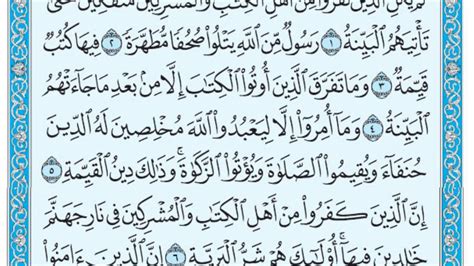 لَمْ يَكُنِ الَّذِينَ كَفَرُوا مِنْ أَهْلِ الْكِتَابِ وَالْمُشْرِكِينَ مُنفَكِّينَ حَتَّىٰ
تَأْتِيَهُمُ الْبَيِّنَةُ ١ رَسُولٌ مِّنَ اللَّهِ يَتْلُوا صُحُفًا مُّطَهَّرَةً ٢ فِيهَا كُتُبٌ
قَيِّمَةٌ ٣ وَمَا تَفَرَّقَ الَّذِينَ أُوتُوا الْكِتَابَ إِلَّا مِنۢ بَعْدِ مَا جَاءَتْهُمُ
الْبَيِّنَةُ ٤ وَمَا أُمِرُوا إِلَّا لِيَعْبُدُوا اللَّهَ مُخْلِصِينَ لَهُ الدِّينَ
حُنَفَاءَ وَيُقِيمُوا الصَّلَوٰةَ وَيُؤْتُوا الزَّكَوٰةَ ۚ وَذَٰلِكَ دِينُ الْقَيِّمَةِ ٥
إِنَّ الَّذِينَ كَفَرُوا مِنْ أَهْلِ الْكِتَابِ وَالْمُشْرِكِينَ فِي نَارِ جَهَنَّمَ
خَالِدِينَ فِيهَا ۚ أُولَٰئِكَ هُمْ شَرُّ الْبَرِيَّةِ ٦ إِنَّ الَّذِينَ ءَامَنُوا